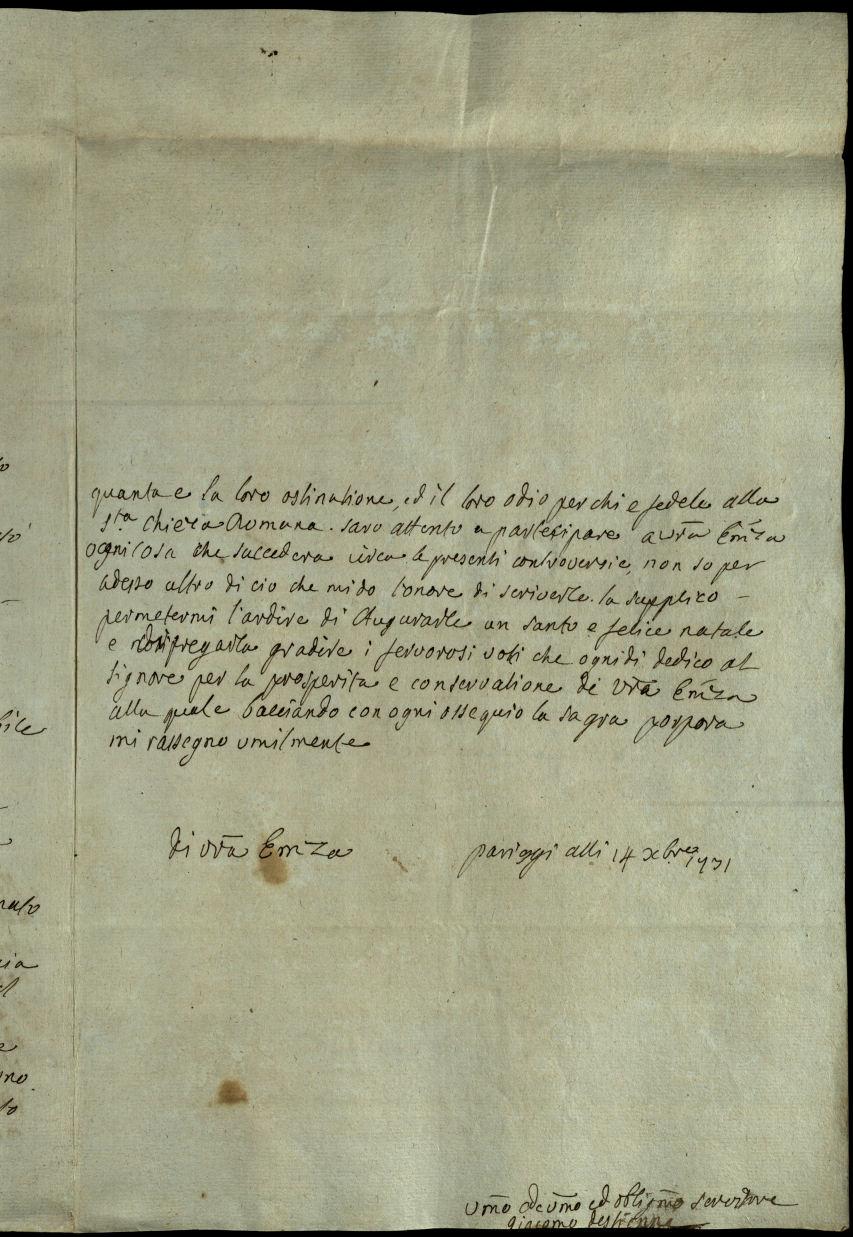 quanta e la loro ostinatione, ed il loro odio per chi e fedele alla
sta chieza Romana. saro attento a partecipare a vra Emza
ogni cosa che succedera circa le presenti controversie, non so per
adesso altro di cio che mi do l'onore di scriverle. la supplico –
permetermi l'ardire di Augurarle un santo e felice natale
e pregarla gradire i fervorosi voti che ogni di dedico al
signore per la prosperita e conservatione di Vra Emza
alla quale bacciando con ogni ossequio la sagra porpora
mi rassegno umilmente
di vra Emza
pariggi alli 14 xbre 1731
Umo ed oblig.mo servitore
giacomo